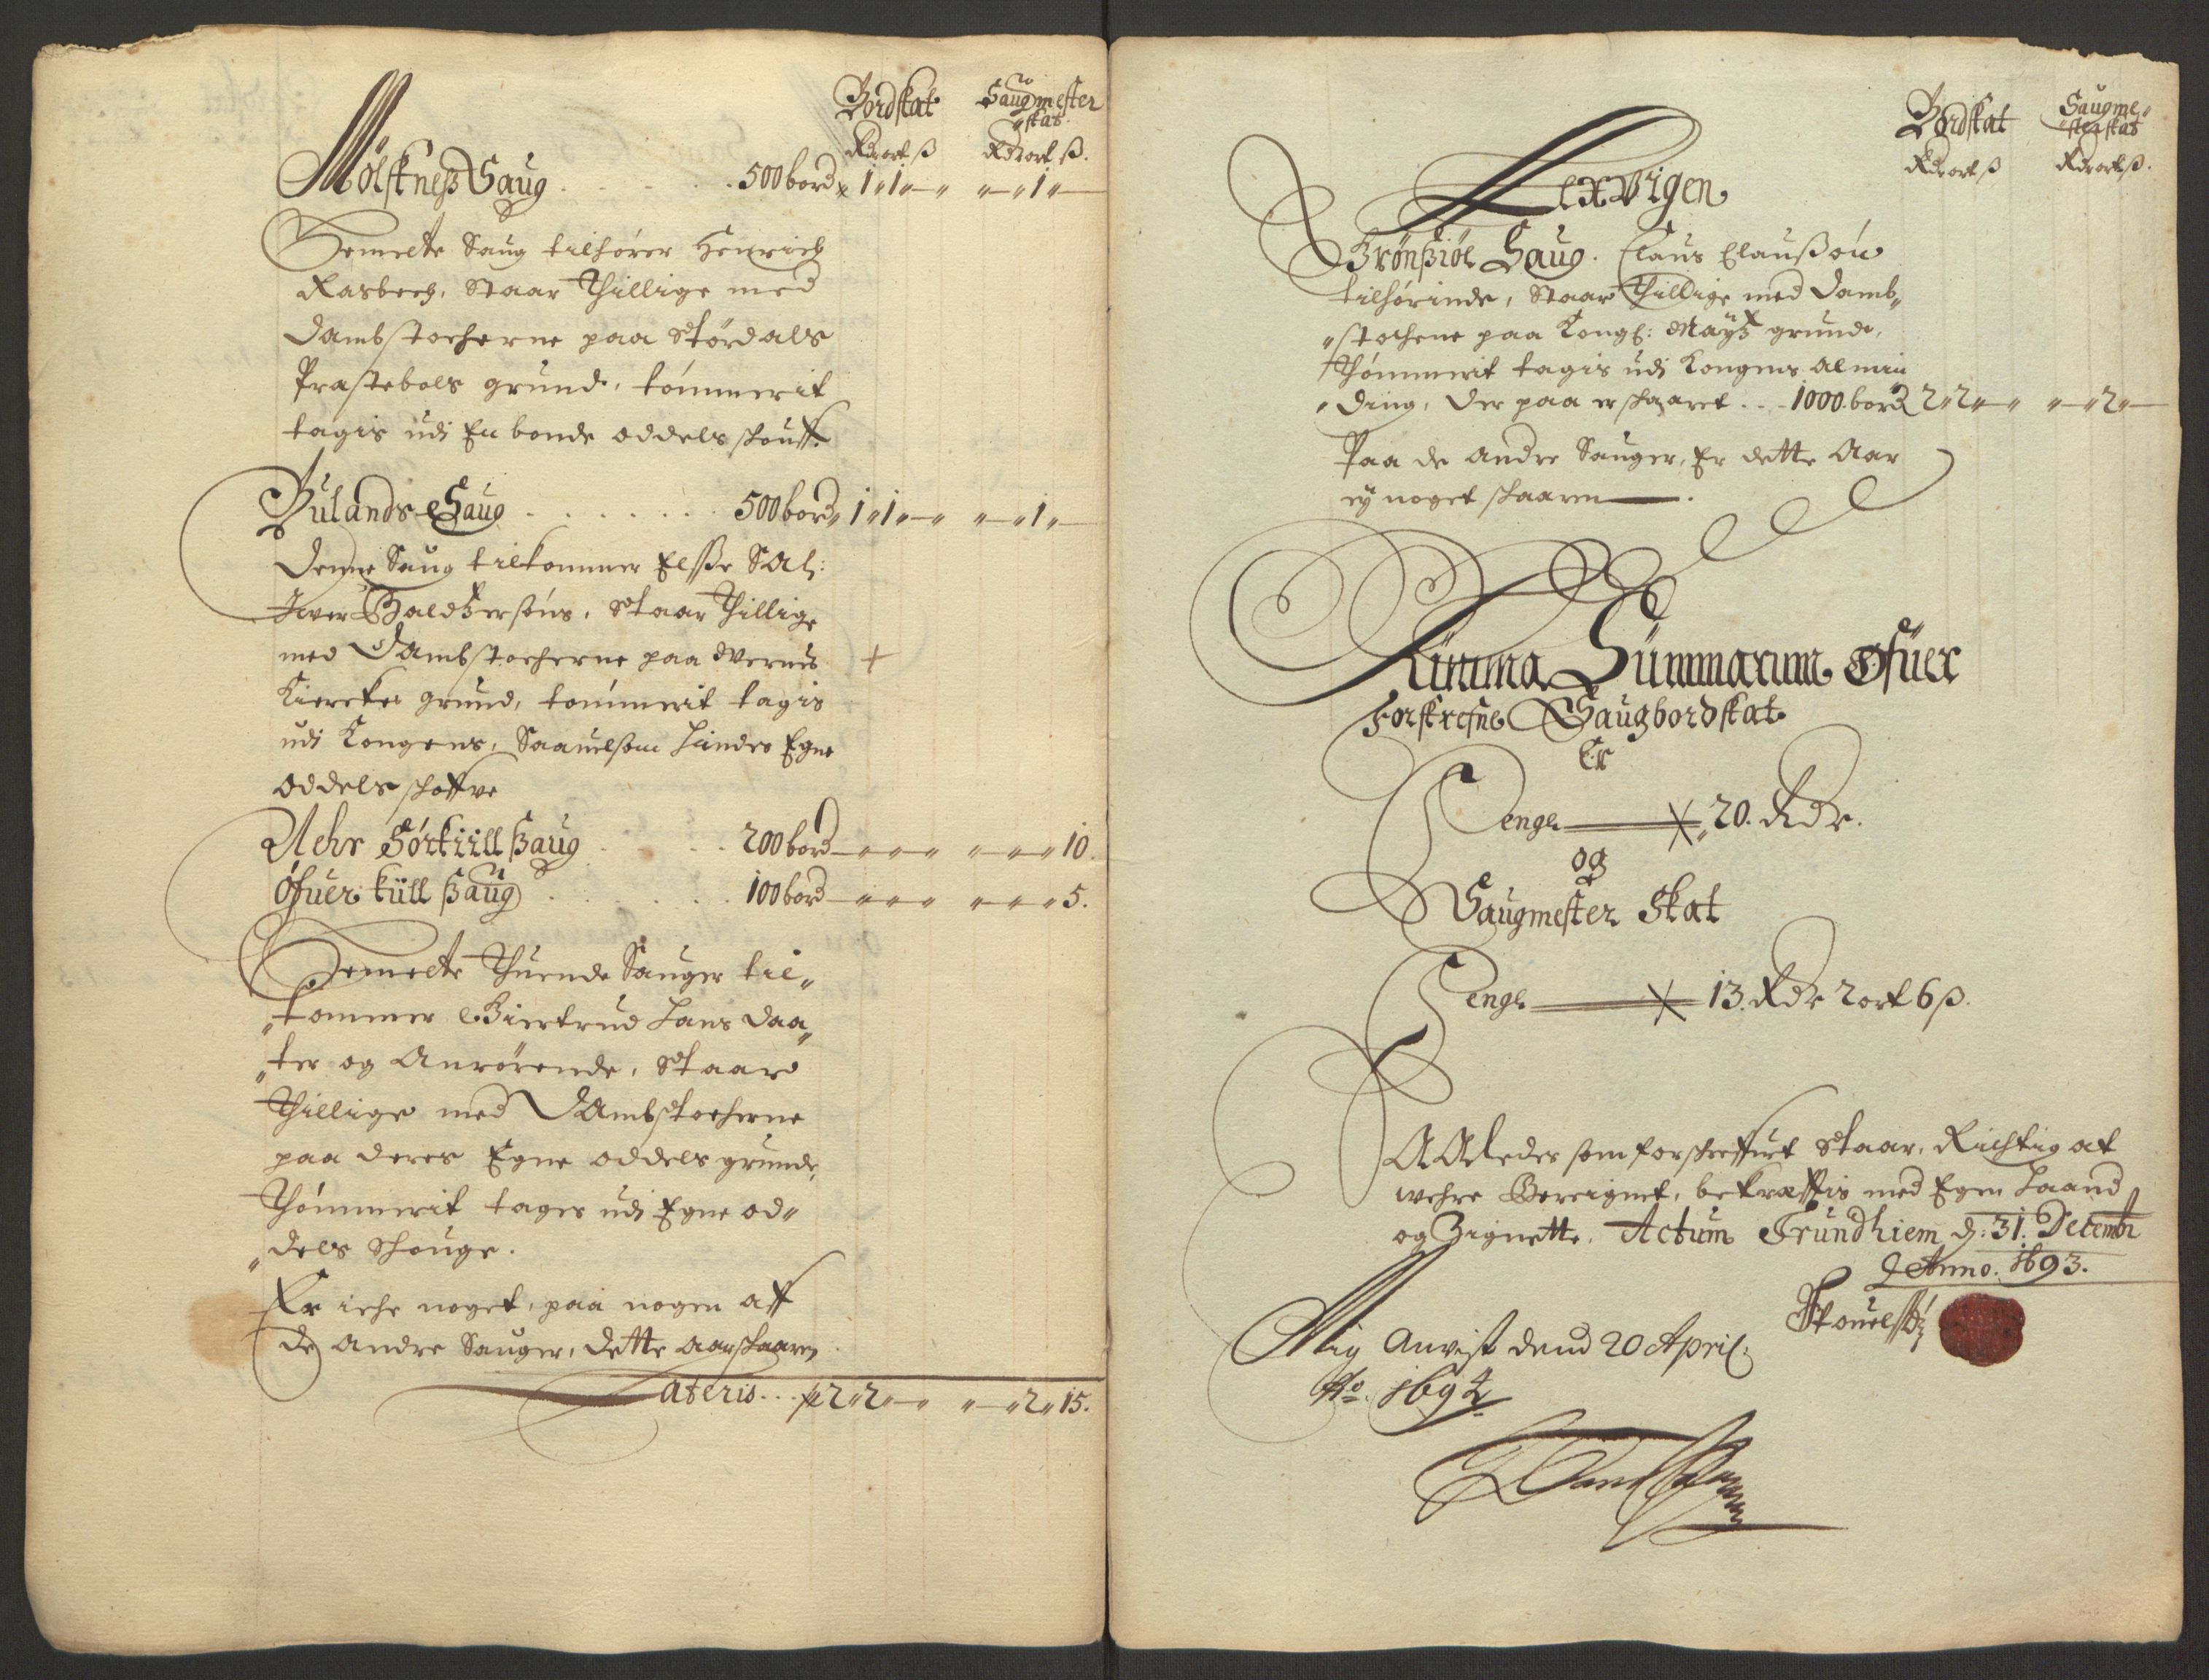 Bordskat Saugmester
"skat
Rdr ort ß Rdr ort ß.
Mölskneß Saug . . . . . 500 bord " 1 " 1 " — " " — " 1 " —
Bemelte Saug tilhörer Henrich
Rasbech, Staar Thillige med
Dambstocherne paa Stördals
Præstebols grund, tömmerit
tagis udi En bonde oddels schouff.
Bulands Saug . . . . . . . 500 bord " 1 " 1 " — " " — " 1 " —
Denne Saug tilkommer Elsse Sal:
Iver Baldtzersöns, Staar Thillige
med Dambstocherne paa Wernis
Kierckes grund, tömmerit tagis
udi Kongens, Saauelsom hindes Egne
Oddels schoffve
Nehr Förkiill Saug . . . . 200 bord — " " " " — " — " " 10.
Öfuer küll Saug . . . . . . . 100 bord — " " " " — " — " " 5.
Bemelte Thuende Sauger til"
"kommer Giertrud Hans Daa"
"ter og Anrörende, Staar
Thillige med Dambstocherne
paa deres Egne oddels grunde,
Thömmerit tages udi Egne od"
"dels Schouge.
Er iche noget, paa nogen aff
de andre Sauger, dette aar schaaren
Lateris . . . 2 " 2 " — " " — " 2 " 15.
Bordskat Saugme"
"sterskat
Rdr ort ß Rdr ort ß.
Lexvigen
Grönßiöe Saug. Claus Claußön
tilhörinde, Staar Thillige med Damb"
"stochene paa Kongl: Mayts grund,
Thömmerit tagis udi Kongens Almin
"ding, der paa er schaaret . . . 1000 bord 2 " 2 " — " " — " 2 " —
Paa de andre Sauger, Er dette Aar
ej noget schaaren — .
Summa Summarum Öfuer
Forskrefne Saugbordskat
Er
Penge — 20. Rdr.
og
Saugmester Skat
Penge — 13. Rdr 2 ort 6 ß.
Alledes som forschreffuet Staar, Richtig at
wehre Bereignet, bekræfftis med Egen Haand
og Zignette. Actum Trundhiem d: 31. Decembr
Anno. 1693.
Mig Anvist dend 20 April.
Ao. 1694